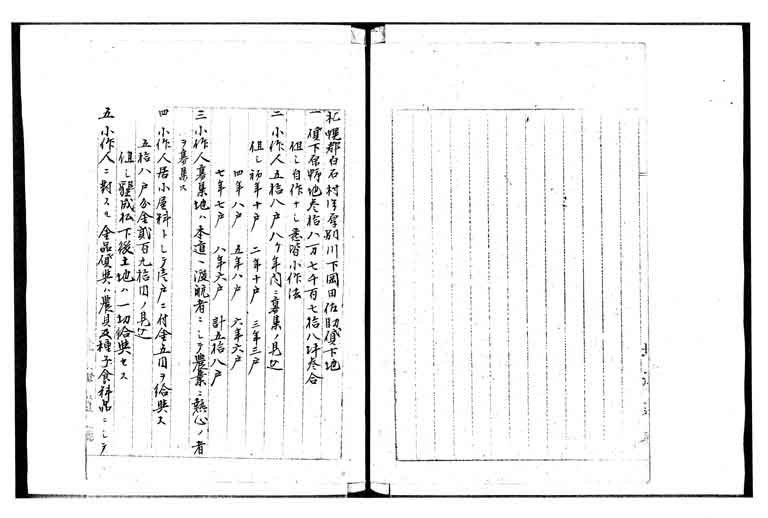 札幌郡白石村字厚別川下岡田佐助貸下地
一 貸下原野地叁拾八万七千百七拾八坪叁合
但シ自作ナシ悉皆小作法
二 小作人五拾八戸八ケ年内ニ募集ノ見込
但シ初年十戸 二年十戸 三年三戸
四年八戸 五年八戸 六年六戸
七年七戸 八年六戸 計五拾八戸
三 小作人募集地ハ本道ヘ渡航者ニシテ農業ニ熱心ノ者
ヲ募集ス
四 小作人居小屋料トシテ壱戸ニ付金五円ヲ給与ス
五拾八戸分金貮百九拾円ノ見込
但シ墾成払下後土地ハ一切給与セス
五 小作人ニ対スル金品貸与ハ農具及種子食料品ニシテ